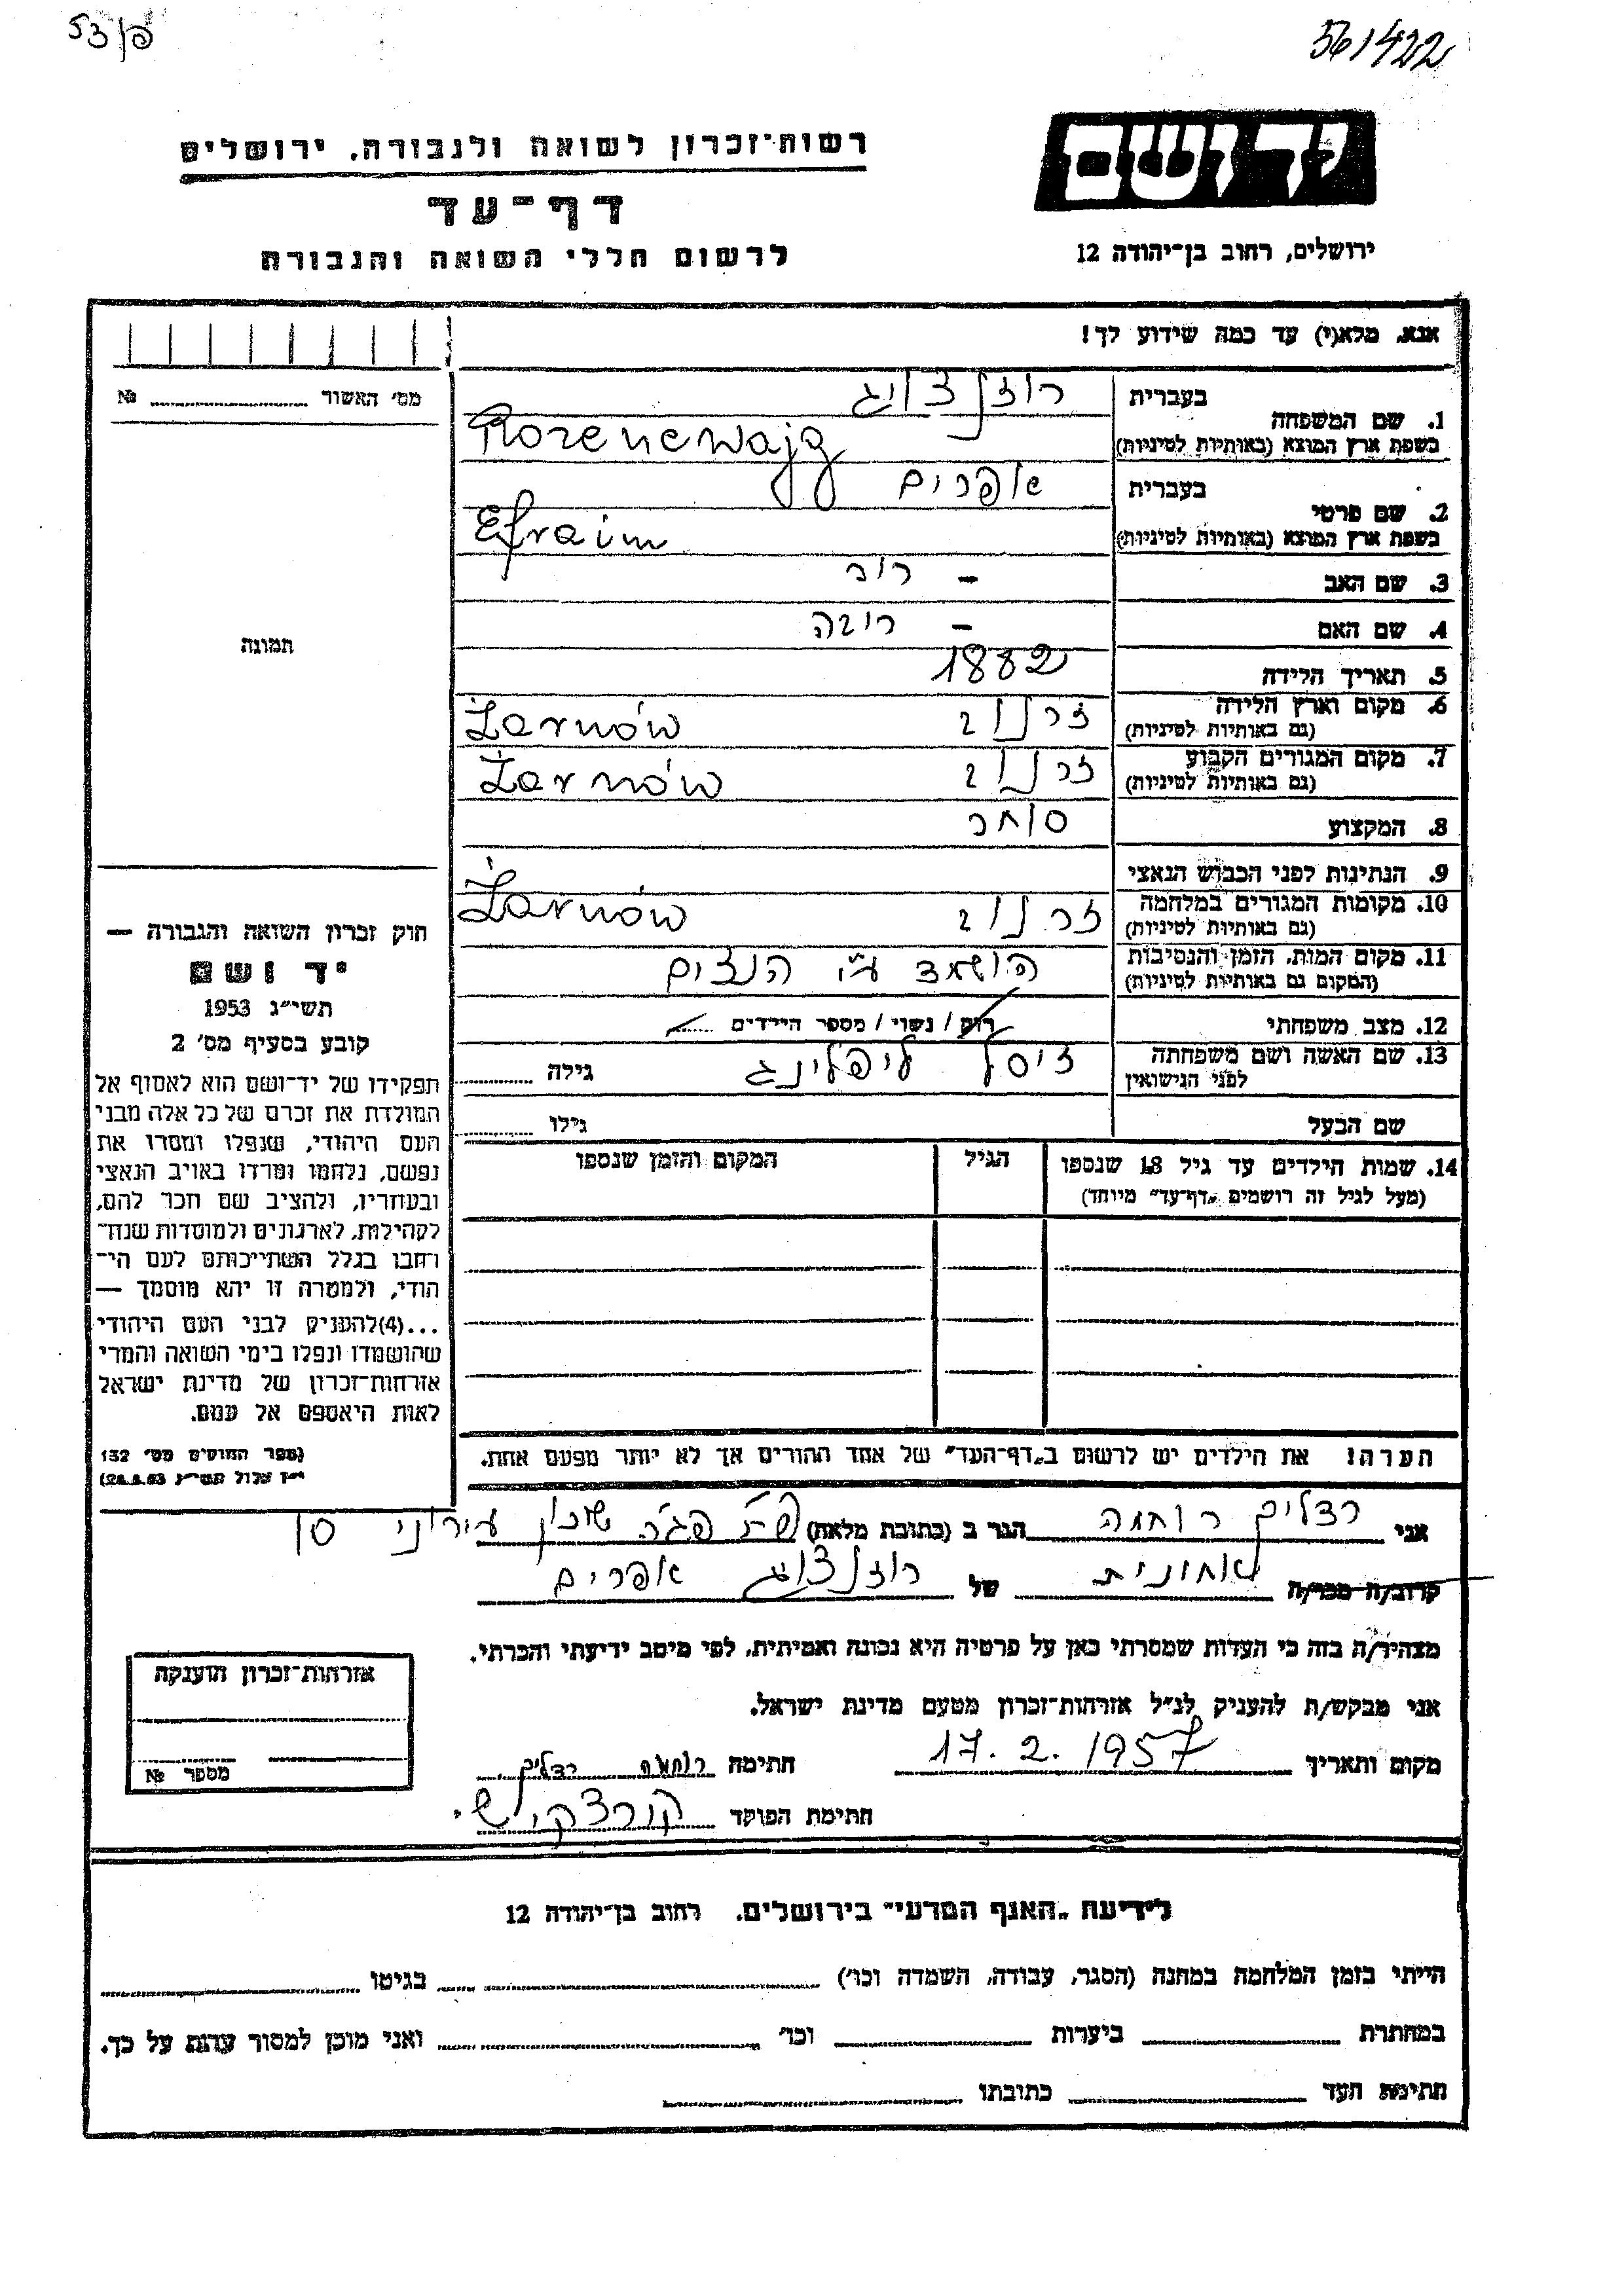 53/פ
561422
יד ושם
ירושלים, רחוב בן־יהודה 12
רשות־זכרון לשואה ולגבורה. ירושלים
דף־עד
לרשום חללי השואה והגבורה
אנא. מלא(י) עד כמה שידוע לך!
מס׳ האשור № 
1. שם המשפחה
בעברית
רוזנצויג
בשפת ארץ המוצא (באותיות לטיניות)
Rozenewajg
2. שם פרטי
בעברית
אפרים
בשפת ארץ המוצא (באותיות לטיניות)
Efraim
3. שם האב
–
4. שם האם
– ריבה
5. תאריך הלידה
1882
6. מקום וארץ הלידה
(גם באותיות לטיניות)
Żarnów
7. מקום המגורים הקבוע
(גם באותיות לטיניות)
Żarnów
8. המקצוע
סוחר
9. הנתינות לפני הכבוש הנאצי
10. מקומות המגורים במלחמה
(גם באותיות לטיניות)
Żarnów
11. מקום המות. הזמן והנסיבות
(המקום גם באותיות לטיניות)
הושמד ע״י הנצים
12. מצב משפחתי
רוק / נשוי / מספר הילדים
13. שם האשה ושם משפחתה
לפני הנישואין
ציסל ליפלינג
גילה
שם הבעל
גילו
14. שמות הילדים עד גיל 18 שנספו
(מעל לגיל זה רושמים „דף־עד״ מיוחד)
הגיל
המקום והזמן שנספו
תמונה
חוק זכרון השואה והגבורה —
יד ושם
תשי״ג 1953
קובע בסעיף מס׳ 2
תפקידו של יד־ושם הוא לאסוף אל
המולדת את זכרם של כל אלה מבני
העם היהודי, שנפלו ומסרו את
נפשם, נלחמו ומרדו באויב הנאצי
ובעוזריו, ולהציב שם וזכר להם,
לקהילות, לארגונים ולמוסדות שנח־
רבו בגלל השתייכותם לעם הי־
הודי, ולמטרה זו יהא מוסמך —
...(4)להעניק לבני העם היהודי
שהושמדו ונפלו בימי השואה והמרי
אזרחות־זכרון של מדינת ישראל
לאות היאספם אל עמם.
(ספר החוקים מס׳ 132
י״ז אלול תשי״ג 28.8.53)
הערה! את הילדים יש לרשום ב„דף־העד״ של אחד ההורים אך לא יותר מפעם אחת.
אני רצלים רוחמה הגר ב (כתובת מלאה) שכון עירוני
קרוב/ה מכר/ה אחינית של רוזנצויג אפרים
מצהיר/ה בזה כי העדות שמסרתי כאן על פרטיה היא נכונה ואמיתית, לפי מיטב ידיעתי והכרתי.
אני מבקש/ת להעניק לנ״ל אזרחות־זכרון מטעם מדינת ישראל.
מקום ותאריך 17.2.1957 חתימה רוחמה רצלים
חתימת הפוקד
אזרחות־זכרון הוענקה
מספר №
לידיעת „האגף המדעי״ בירושלים. רחוב בן־יהודה 12
הייתי בזמן המלחמה במחנה (הסגר, עבודה, השמדה וכו׳) בגיטו
במחתרת ביערות וכו׳ ואני מוכן למסור עדות על כך.
חתימת העד כתובתו